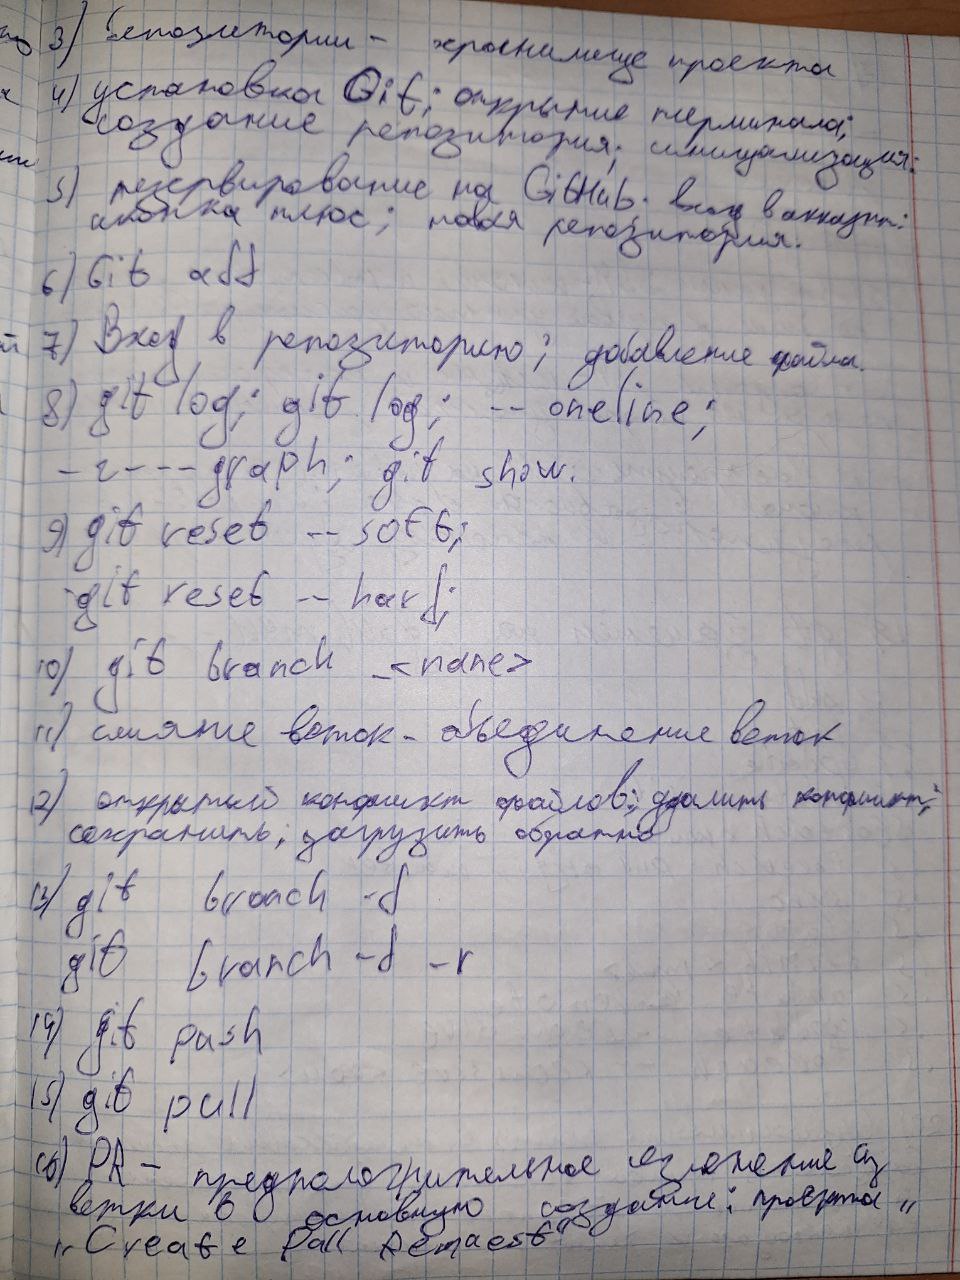 3) Репозитории - хранилище проекта
4) установка Git; открытие терминала;
создание репозитория; инициализация:
5) резервирование на GitHub. вход в аккаунт:
иконка плюс; новая репозитория.
6) Git add
7) Вход в репозиторию; добавление файла.
8) git log; git log; -- oneline;
---- graph; git show.
9) git reset -- soft;
git reset -- hard;
10) git branch _<name>
11) слияние веток - объединение веток
12) открытый конфликт файлов; удалить конфликт;
сохранить; загрузить обратно
13) git branch -d
git branch -d -r
14) git push
15) git pull
16) PR - предположительное изменение из
ветки в основную создание: проекта "
"Create Pull Request"